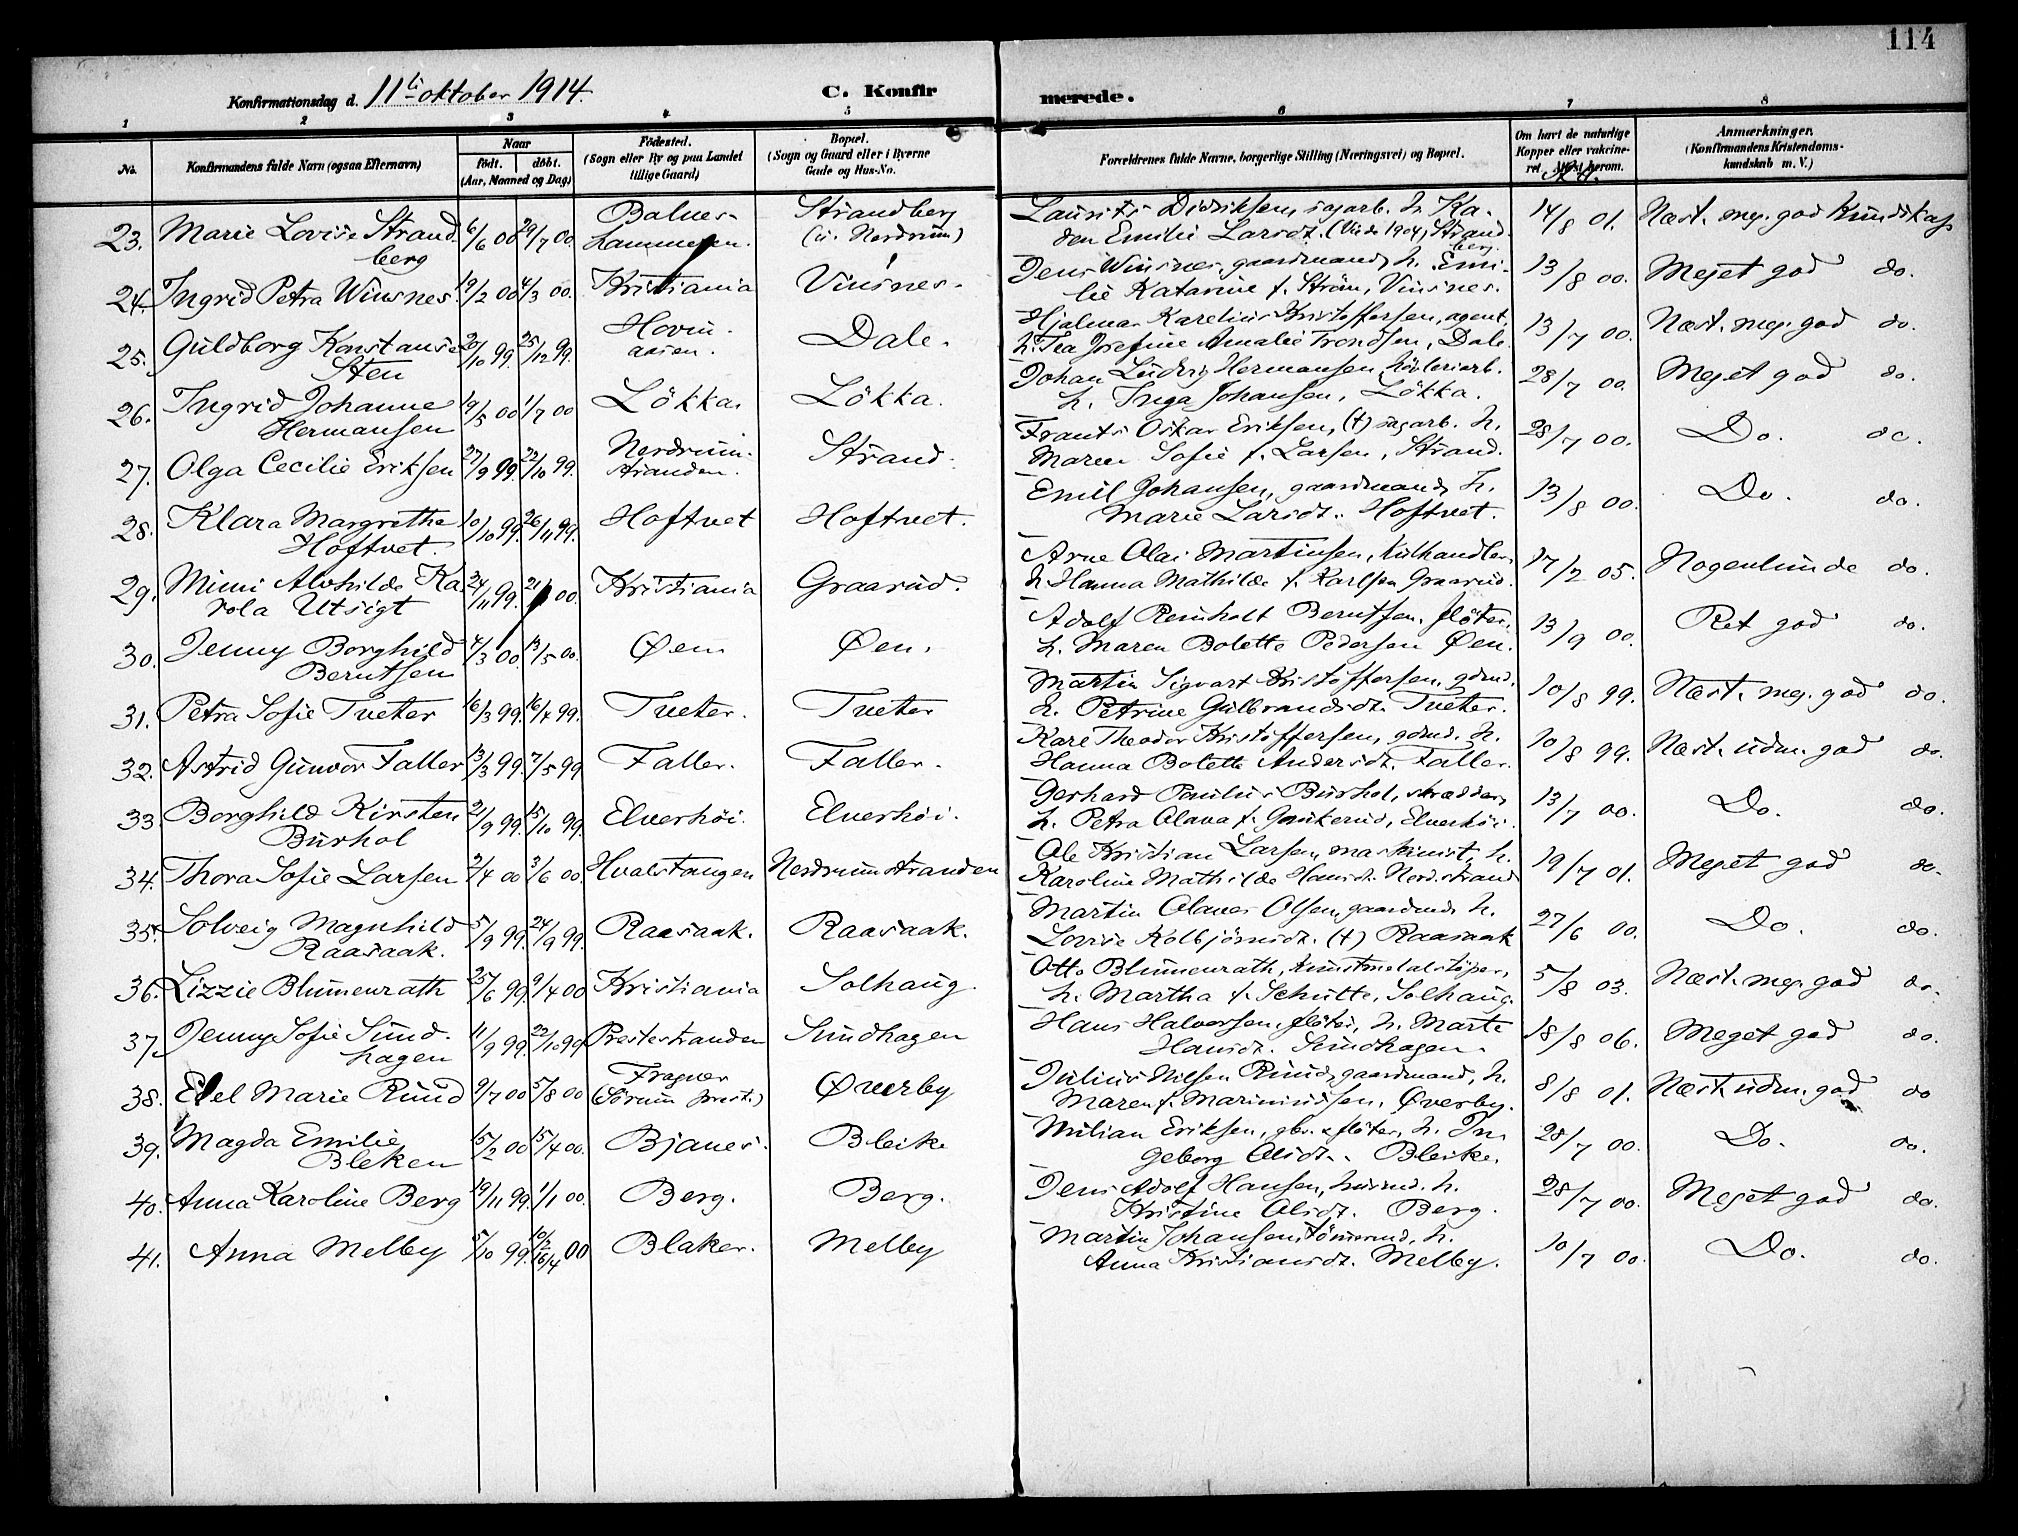 114
Konfirmationsdag d. 11te oktober 1914. C. Konfirmerede.
1 2 3 4 5 6 7 8
No. Konfirmandens fulde Navn (ogsaa Efternavn) Naar født. døbt. (Aar, Maaned og Dag) Fødested. (Sogn eller By og paa Landet tillige Gaard) Bopæl. (Sogn og Gaard eller i Byerne Gade og Hus-No. Forældrenes fulde Navne, borgerlige Stilling (Næringsvei) og Bopæl. Om havt de naturlige Kopper eller vakcineret. Attest herom. Anmærkninger. (Konfirmandens Kristendomskundskab m. V.)
23. Marie Lovise Strand 6/6 00 29/7 00 Balnes- Strandberg Laurits Didriksen, sagarb. h. Ka- 14/8 01. Næst. meg. god Kundskap
berg Lammeren. (u. Nordrum) den Emilie Larsdt. (Vids 1904, Strandberg.
24. Ingrid Petra Winsnes. 19/2 00 4/3 00. Kristiania Vinsnes. Jens Winsnes, gaardmand, h. Emi- 13/8 00. Meget god do.
lie Katarine f. Strøm, Vinsnes.
25. Guldborg Konstanse 20/10 99. 25/12 99. Hovin- Dale. Hjalmar Karelius Kristoffersen, agent, 13/7 00. Næst. meg. god do.
Sten aasen. h. Tea Josefine Amalie Trondsen, Dale.
26. Ingrid Johanne 19/5 00 1/7 00 Løkka. Løkka. Johan Ludvig Hermansen, høvleriarb. 28/7 00. Meget god do.
Hermansen h. Inga Johansen, Løkka.
27. Olga Cecilie Eriksen 27/9 99. 22/10 99. Nordrum- Strand. Frants Oskar Eriksen, (†) sagarb. h. 28/7 00. Do. do.
stranden. Maren Sofie f. Larsen, Strand.
28. Klara Margrethe 10/10 99. 26/11 99. Hoftvet Hoftvet. Emil Johansen, gaardmand, h. 13/8 00. Do. do.
Hoftvet. Marie Larsdt. Hoftvet.
29. Mimi Alvhilde Ka 24/11 99. 21/ 00. Kristiania Graarud. Arne Olai Martinsen, kulhandler, 17/2 05. Nogenlunde do.
rola Utsigt h. Hanna Mathilde f. Karlsen Graarud.
30. Jenny Borghild 4/3 00. 13/5 00. Øen Øen. Adolf Reinholt Berntsen, fløter, 13/9 00. Ret god do.
Berntsen h. Maren Bolette Pedersen Øen.
31. Petra Sofie Tveter 16/3 99. 16/4 99. Tveter. Tveter Martin Sigvart Kristoffersen, gdmd. 10/8 99. Næst. meg. god do.
h. Petrine Gulbrandsdt. Tveter.
32. Astrid Gunvor Faller 13/3 99. 7/5 99 Faller. Faller. Kare Theodor Kristoffersen, gdmd. h. 10/8 99. Næst. udm. god do.
Hanna Bolette Andersdt. Faller.
33. Borghild Kirsten 21/9 99. 15/10 99. Elverhöi. Elverhöi. Gerhard Paulus Burhol, skrædder, 13/7 00. Do. do.
Burhol h. Petra Olava f. Gaukerud, Elverhöi.
34. Thora Sofie Larsen 2/4 00 3/6 00. Hvalstangen Nordrumstranden Ole Kristian Larsen, maskinist, h. 19/7 01. Meget god do.
Karoline Mathilde Hansdt. Nord.strand
35. Solveig Magnhild 5/9 99. 24/9 99. Raasaak. Raasaak. Martin Olaves Olsen, gaardmd. h. 27/6 00. Do. do.
Raasaak. Lovise Kolbjörnsdt. (†) Raasaak
36. Lizzie Blumenrath 25/6 99. 9/4 00 Kristiania Solhaug. Otto Blumenrath, kunstmetalstøper, 5/8 03. Næst. meg. god do.
h. Martha f. Schulte, Solhaug.
37. Jenny Sofie Sund- 11/9 99. 22/10 99 Prestestranden Sundhagen Hans Halvorsen, fløter, h. Marte 18/8 06. Meget god do.
hagen Hansdt. Sundhagen.
38. Edel Marie Ruud 9/7 00 5/8 00 Fragner Øverby Julius Nilsen Ruud, gaardmand, h. 8/8 01. Næst udm. god do
(Sørum prest.) Maren f. Mariniusen, Øverby.
39. Magda Emilie 15/2 00 15/4 00. Bjanes. Bleike Milian Eriksen, gbr. & fløter, h. In 28/7 00. Do. do.
Bleken geborg Olsdt. Bleike.
40. Anna Karoline Berg 19/11 99. 1/1 00. Berg. Berg. Jens Adolf Hansen, husmd. h. 28/7 00. Meget god do.
Kristine Olsdt. Berg.
41. Anna Melby 5/10 99. 10/2 16/4 00 Blaker. Melby Martin Johansen, tömmermd. h. 10/7 00. Do. do.
Anna Kristiansdt. Melby.